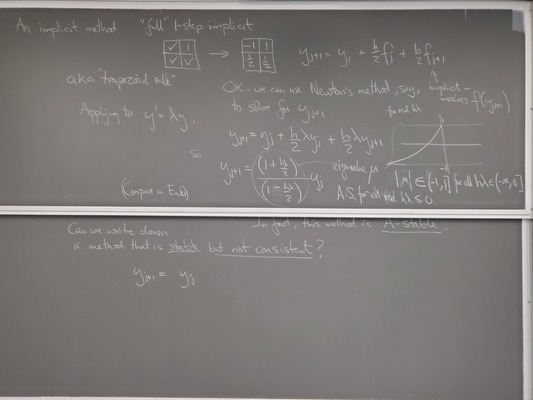 An implicit method "full" 1-step implicit
✓ 1 ✓ ✓ → -1 1 1/2 1/2 y_{j+1} = y_j + h/2 f_j + h/2 f_{j+1}
a.k.a "trapezoid rule"
OK - we can use Newton's method, say,
to solve for y_{j+1}
implicit -
involves f(y_{j+1})
Applying to y' = λy,
y_{j+1} = y_j + h/2 λy_j + h/2 λy_{j+1}
for real hλ
so
y_{j+1} = (1 + hλ/2) / (1 - hλ/2) y_j
eigenvalue μ
|μ| ∈ (-1, 1] for all hλ ∈ (-∞, 0]
A.S. for all real hλ ≤ 0
In fact, this method is A-stable.
Can we write down
a method that is stable but not consistent?
y_{j+1} = y_j